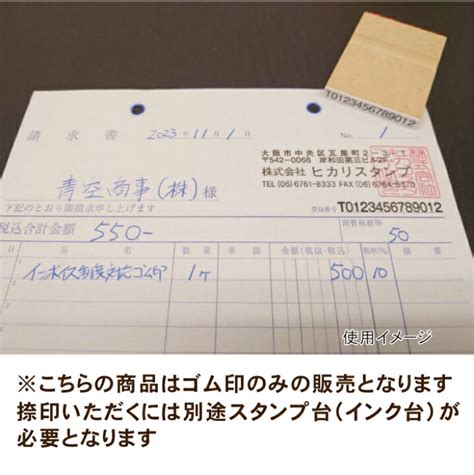 T0123456789012
請求書 2023年11月1日 No. 1
大阪市中央区瓦屋町2-3-1
〒542-0066 岸和田第三ビル2F
株式会社 ヒカリスタンプ
TEL (06) 6761-8333 FAX (06) 6764-6370
青空商事(株)様
下記のとおり御請求申し上げます
登録番号 T0123456789012
税込合計金額 550-
消費税額等 50
品名 数量 単価 金額(税抜・税込) 税率(%) 摘要
インボイス制度対応ゴム印 1ヶ 500 10
使用イメージ
※こちらの商品はゴム印のみの販売となります
捺印いただくには別途スタンプ台(インク台)が
必要となります